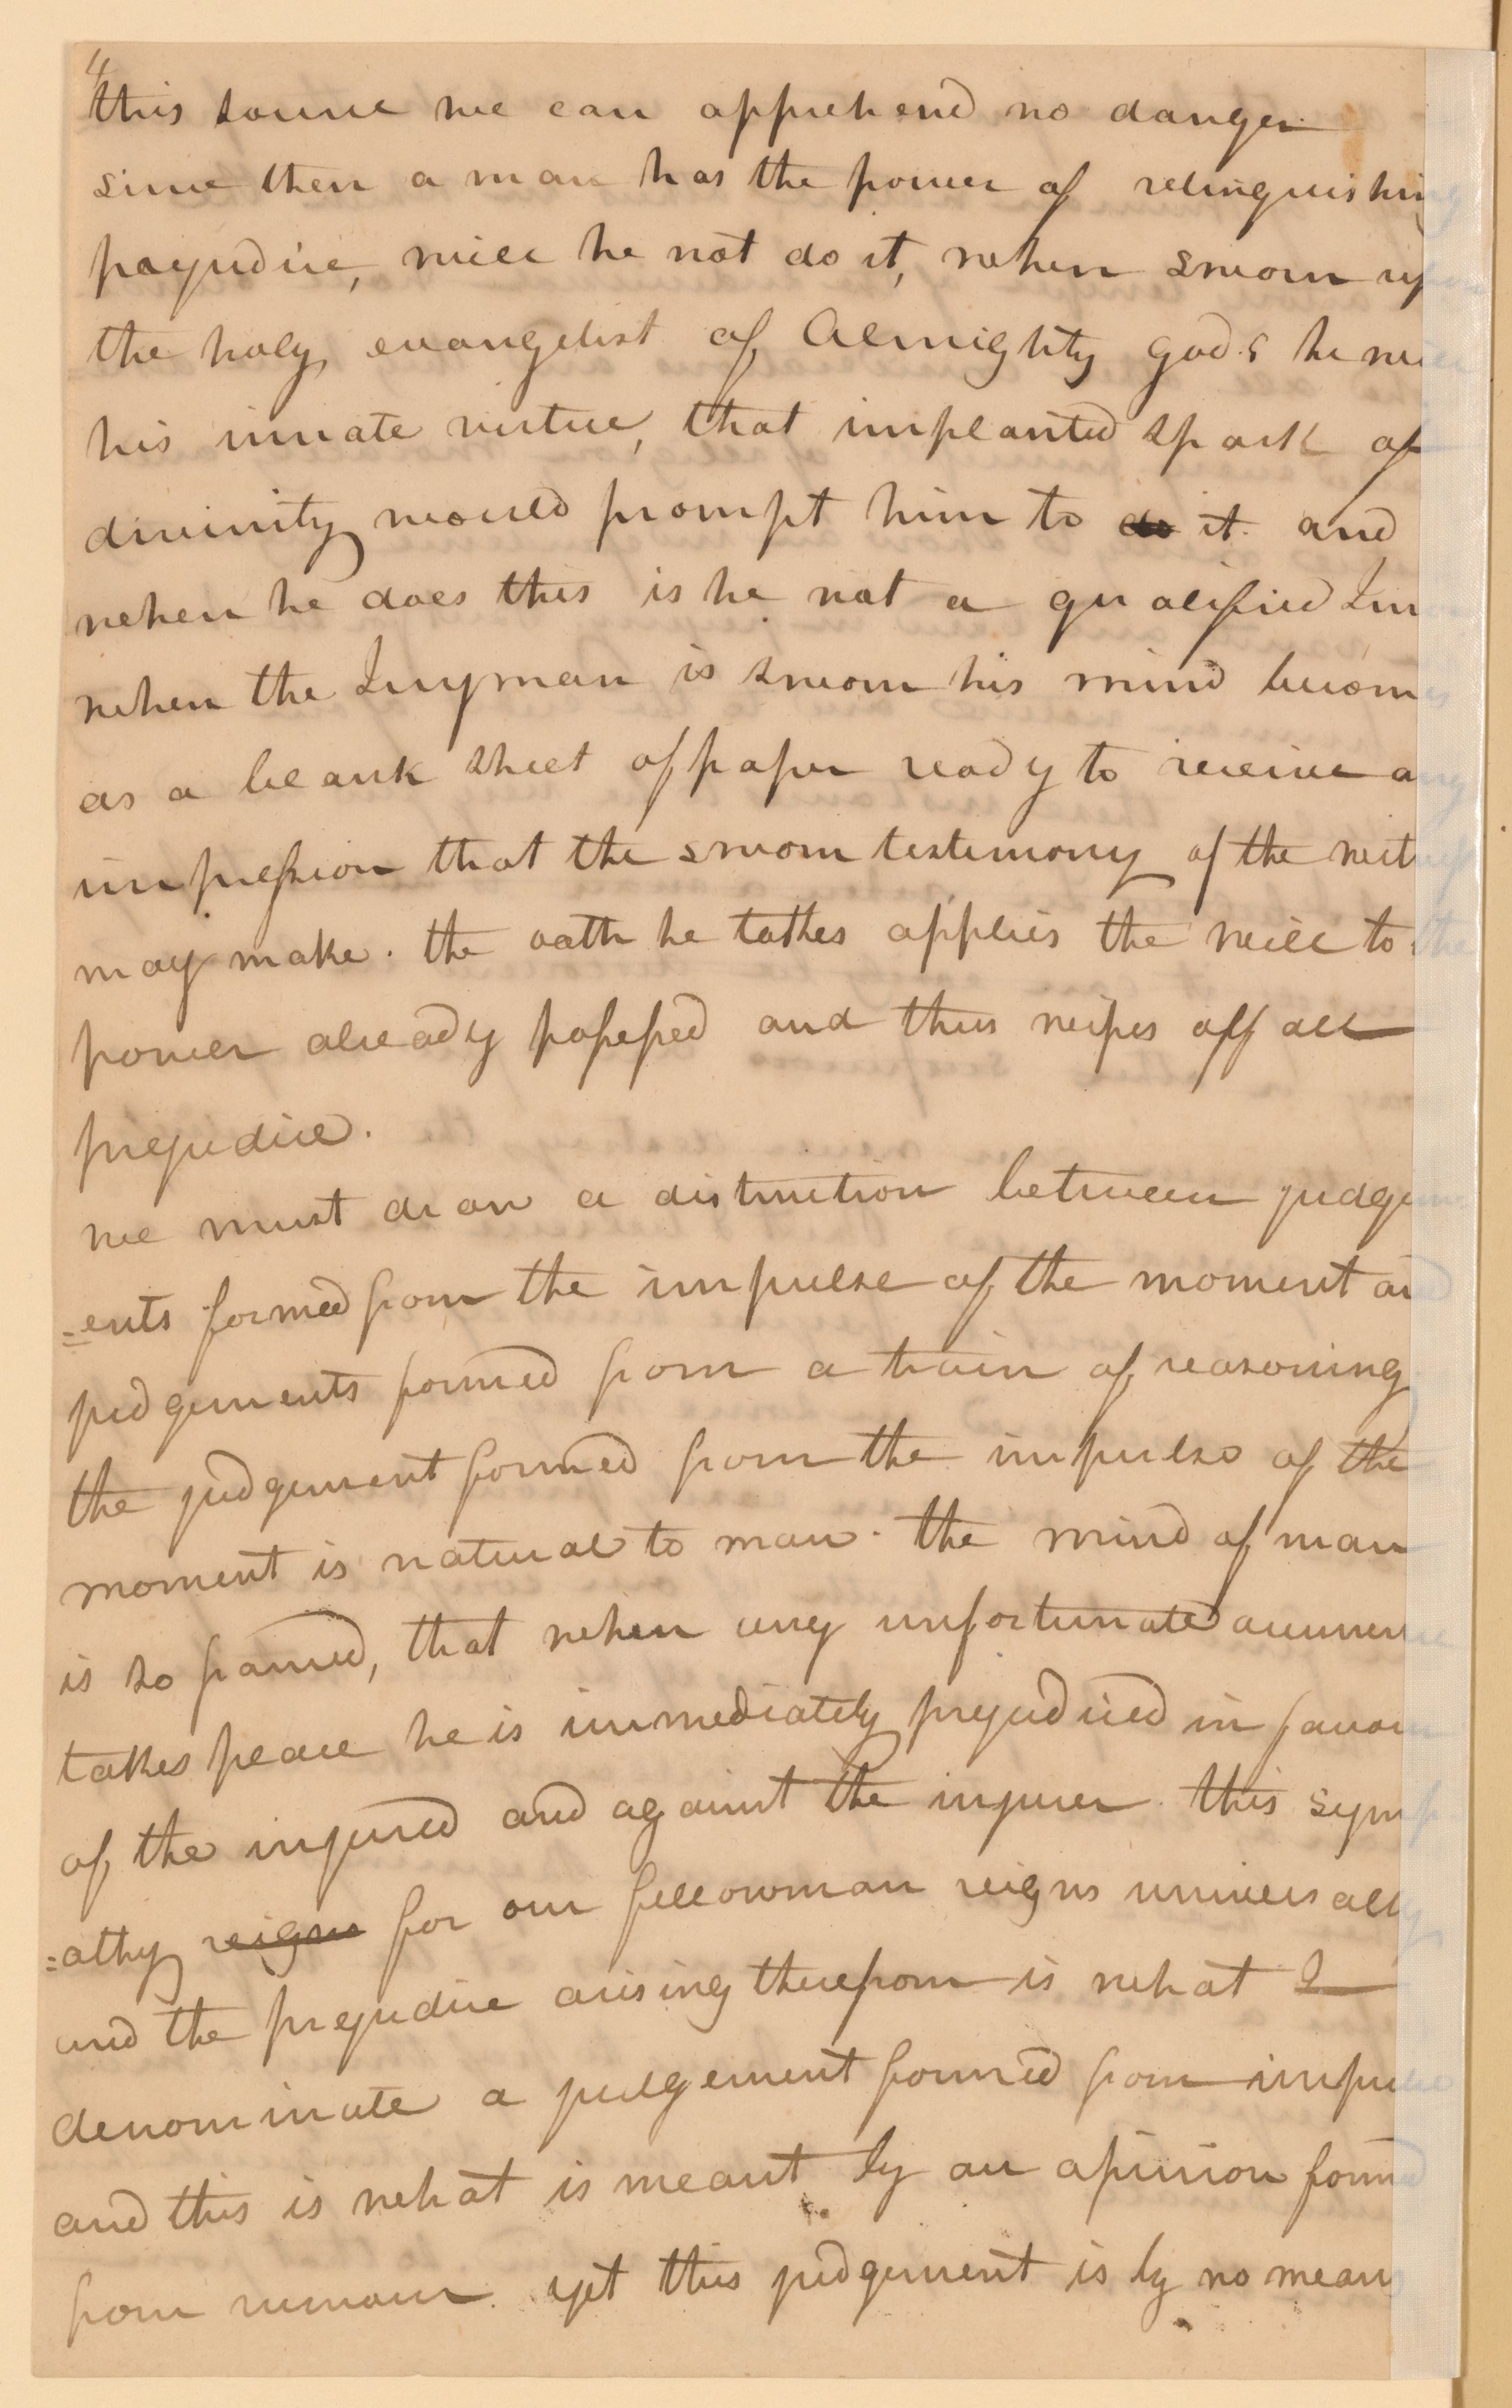 4
this sourse we can apprehend no danger.
since then a man has the power of relinquishing
prejudice, will he not do it, when sworn upon
the holy evangelist of Almighty god. & he will
his innate virtue, that implanted spark of
divinity would prompt him to do it. and
when he does this is he not a qualified Jur
when the Juryman is sworn his mind becomes
as a blank sheet of paper ready to receive any
impression that the sworn testimony of the witness
may make. the oath he takes applies the will to the
power already possessed and thus wipes off all
prejudice.
we must draw a distinction between judgem
=ents formed from the impulse of the moment and
judgements formed from a train of reasoning
the judgement formed from the impulse of the
moment is natural to man. the mind of man
is so framed, that when any unfortunate occurrence
takes place he is immediately prejudiced in favour
of the injured and against the injurer. this symp
=athy reigns for our fellowman reigns universally
and the prejudice arising therefrom is what I
denominate a judgement formed from impulse
and this is what is meant by an opinion formed
from rumour. yet this judgement is by no means